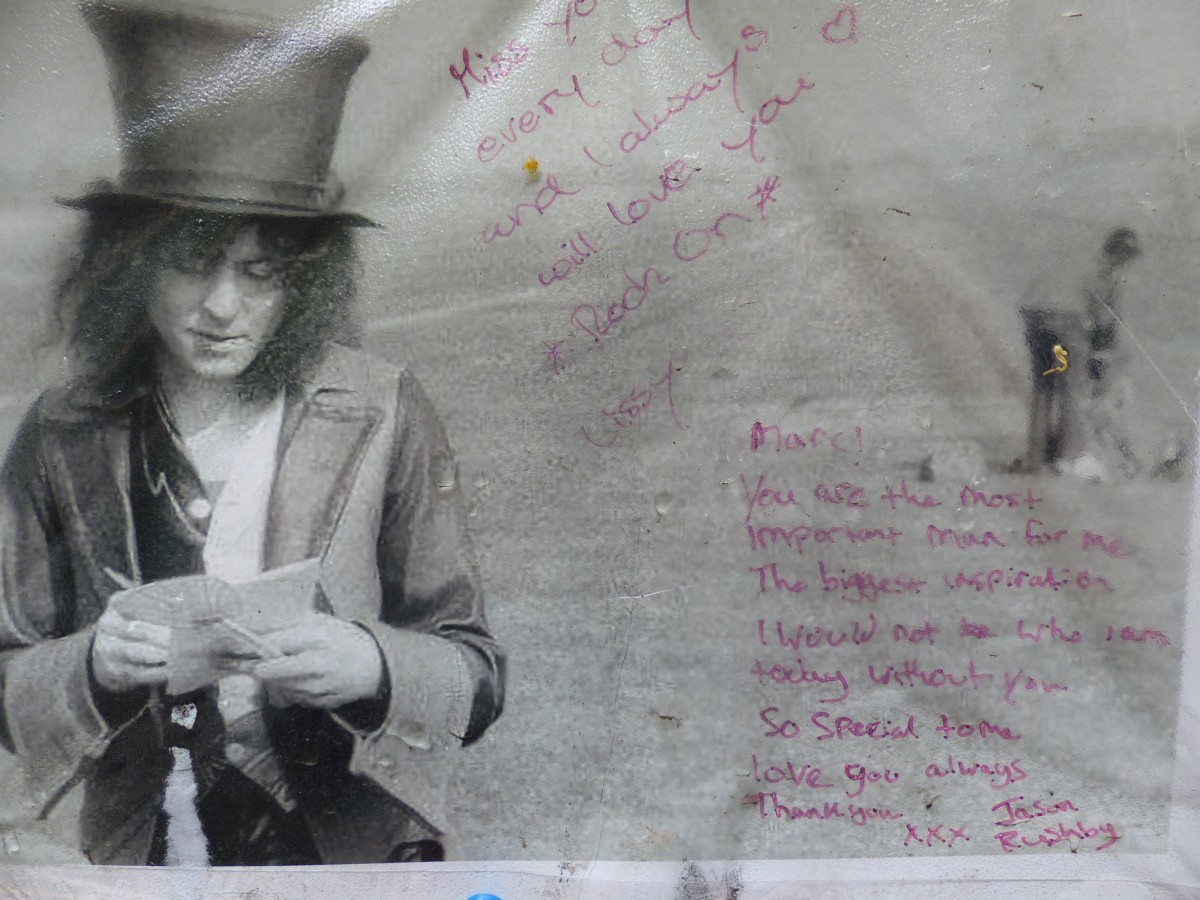 Miss yo
every day
and I always
will love you
* Rock On *
Lissy
Marc!
You are the most
important man for me
The biggest inspiration
I would not who I am
today without you
So special to me
love you always
Thank you
xxx Jason
Rushby